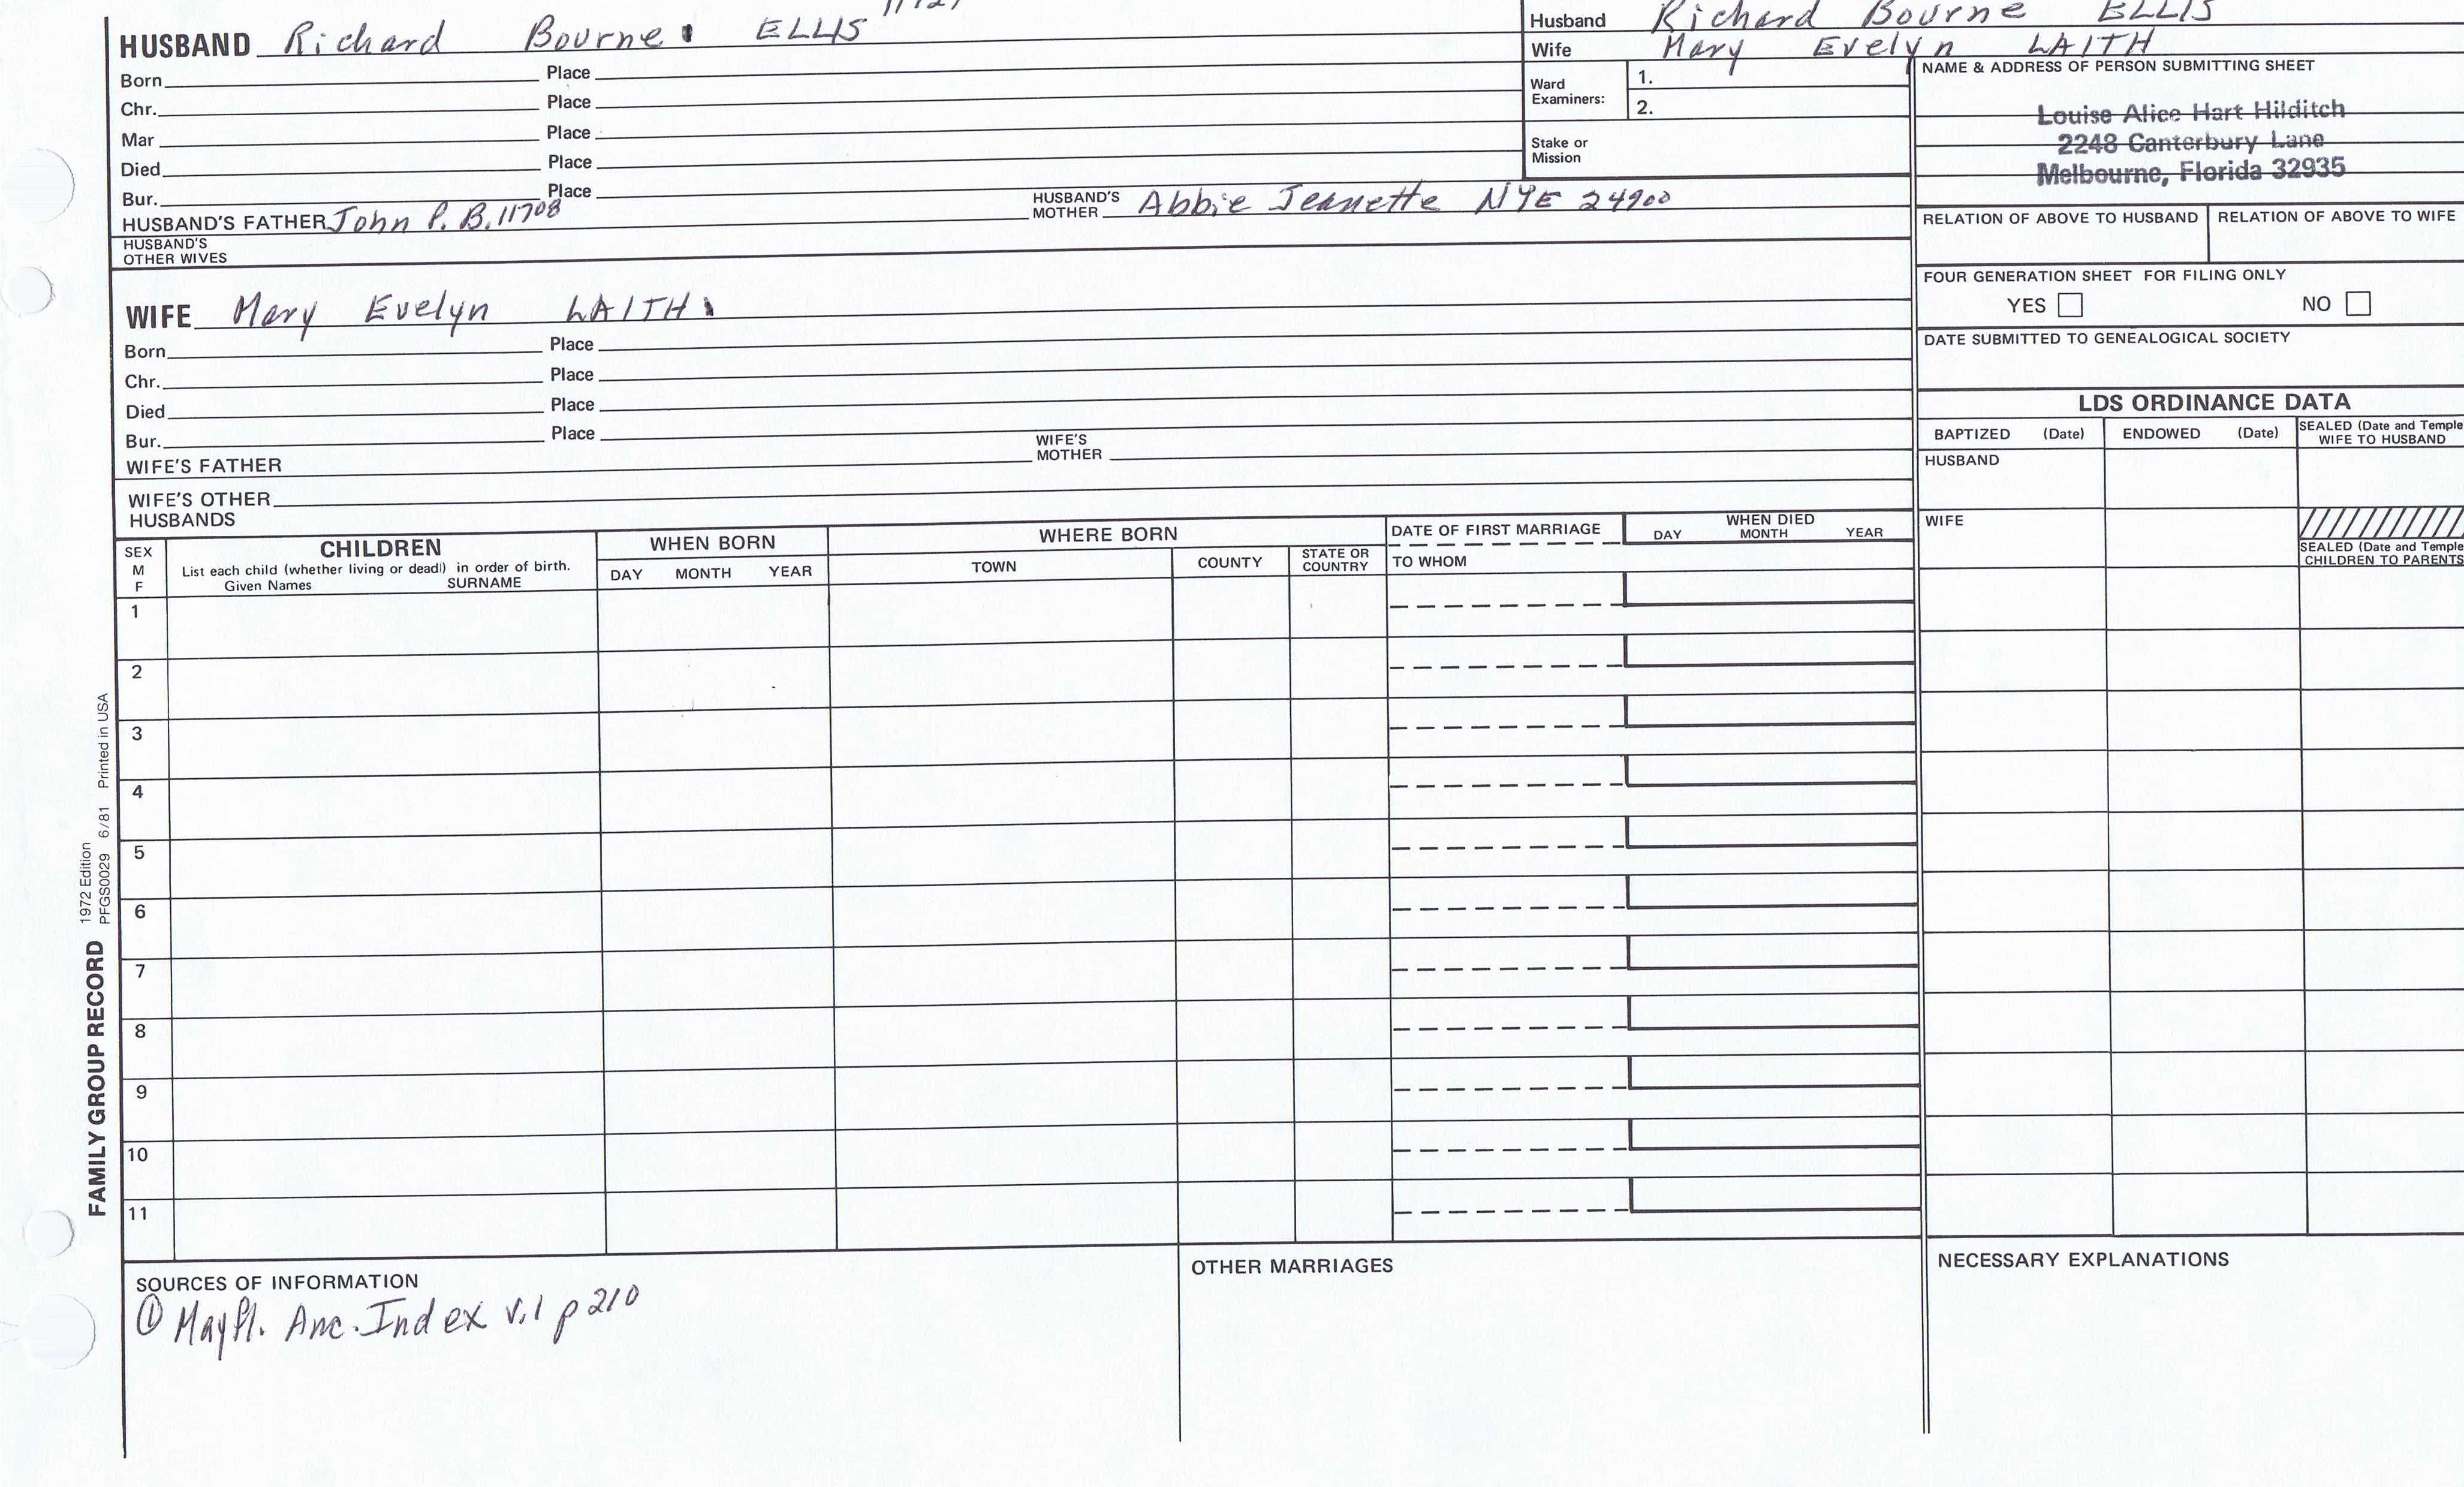 HUSBAND Richard Bourne ELLIS
Born Place
Chr. Place
Mar Place
Died Place
Bur. Place
HUSBAND'S FATHER John P. B. 11708 HUSBAND'S MOTHER Abbie Jeanette NYE 24900
HUSBAND'S OTHER WIVES
Husband Richard Bourne ELLIS
Wife Mary Evelyn LAITH
Ward Examiners: 1.
2.
Stake or Mission
NAME & ADDRESS OF PERSON SUBMITTING SHEET
Louise Alice Hart Hilditch
2248 Canterbury Lane
Melbourne, Florida 32935
RELATION OF ABOVE TO HUSBAND RELATION OF ABOVE TO WIFE
FOUR GENERATION SHEET FOR FILING ONLY
YES NO
DATE SUBMITTED TO GENEALOGICAL SOCIETY
WIFE Mary Evelyn LAITH
Born Place
Chr. Place
Died Place
Bur. Place
WIFE'S FATHER WIFE'S MOTHER
WIFE'S OTHER HUSBANDS
LDS ORDINANCE DATA
BAPTIZED (Date) ENDOWED (Date) SEALED (Date and Temple WIFE TO HUSBAND
HUSBAND
WIFE
SEALED (Date and Temple CHILDREN TO PARENTS
SEX M F
CHILDREN
List each child (whether living or dead) in order of birth.
Given Names SURNAME
WHEN BORN
DAY MONTH YEAR
WHERE BORN
TOWN COUNTY STATE OR COUNTRY
DATE OF FIRST MARRIAGE
TO WHOM
WHEN DIED
DAY MONTH YEAR
1
2
3
4
5
6
7
8
9
10
11
FAMILY GROUP RECORD
1972 Edition
PFGS0029 6/81 Printed in USA
SOURCES OF INFORMATION
① Mayfl. Anc. Index v.1 p 210
OTHER MARRIAGES
NECESSARY EXPLANATIONS